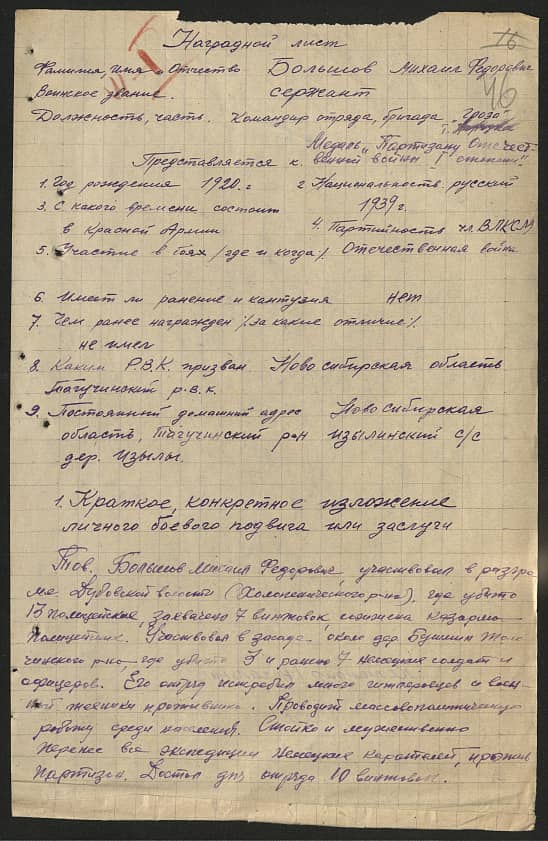 16
Наградной лист
Фамилия, имя и Отчество Большов Михаил Федорович
Воинское звание. сержант
46
Должность, часть. Командир отряда, бригада "Гроза"
Медаль "Партизану Отечест-
Представляется к. венной войны I степени".
1. Год рождения 1920. г 2 Национальность русский
3. С какого времени состоит 1939 г.
в Красной Армии 4. Партийность чл. ВЛКСМ
5. Участие в боях /где и когда/. Отечественная война
6. Имеет ли ранение и кантузия нет
7. Чем ранее награжден /за какие отличие/.
не имел
8. Каким Р.В.К. призван Новосибирская область
Тагучинский р.в.к.
9. Постоянный домашний адрес Новосибирская
область, Тагучинский р-н Изылинский с/с
дер. Изылы.
1. Краткое, конкретное изложение
личного боевого подвига или заслуги
Тов. Большов Михаил Федорович, участвовал в разгро-
ме Дубовской волости (Холопенического р-на), где убито
13 полицейских, захвачено 7 винтовок, сожжена казарма
полицейских. Участвовал в засаде около дер.
чинского р-на, где убито 3 и ранено 7 немецких солдат и
офицеров. Его отряд истребил много гитлеровцев и воен-
ной техники противника. Проводил массовополитическую
работу среди населения. Стойко и мужественно
перенес все экспедиции немецких карателей, против
партизан. Достал для отряда 10 винтовок.